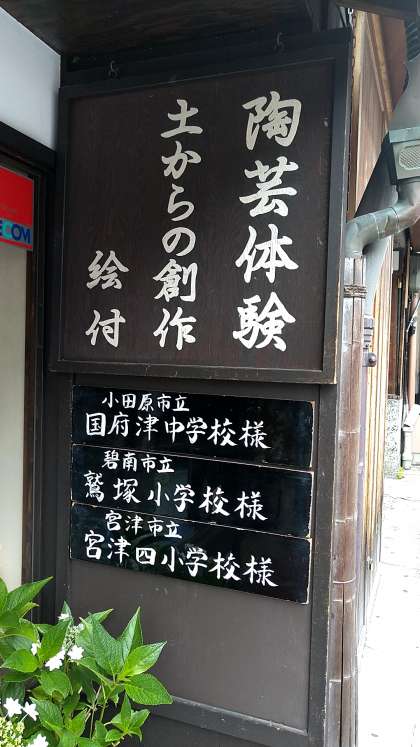 陶芸体験
土からの創作
絵付
小田原市立
国府津中学校様
碧南市立
鷲塚小学校様
宮津市立
宮津四小学校様
ECOM